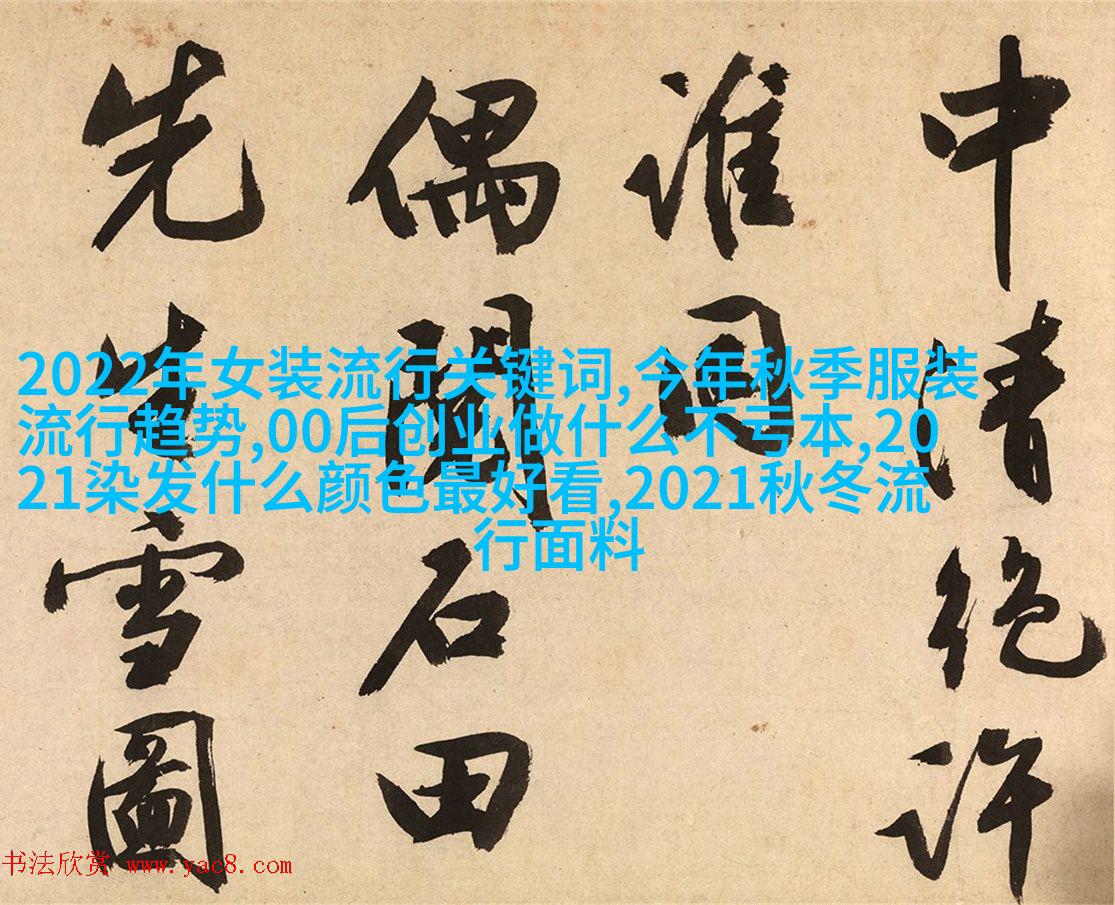 中清絕許
誰同
偶閱石田
先生雪圖
2022年女装流行关键词,今年秋季服装
流行趋势,00后创业做什么不亏本,20
21染发什么颜色最好看,2021秋冬流
行面料
书法欣赏 www.yac8.com